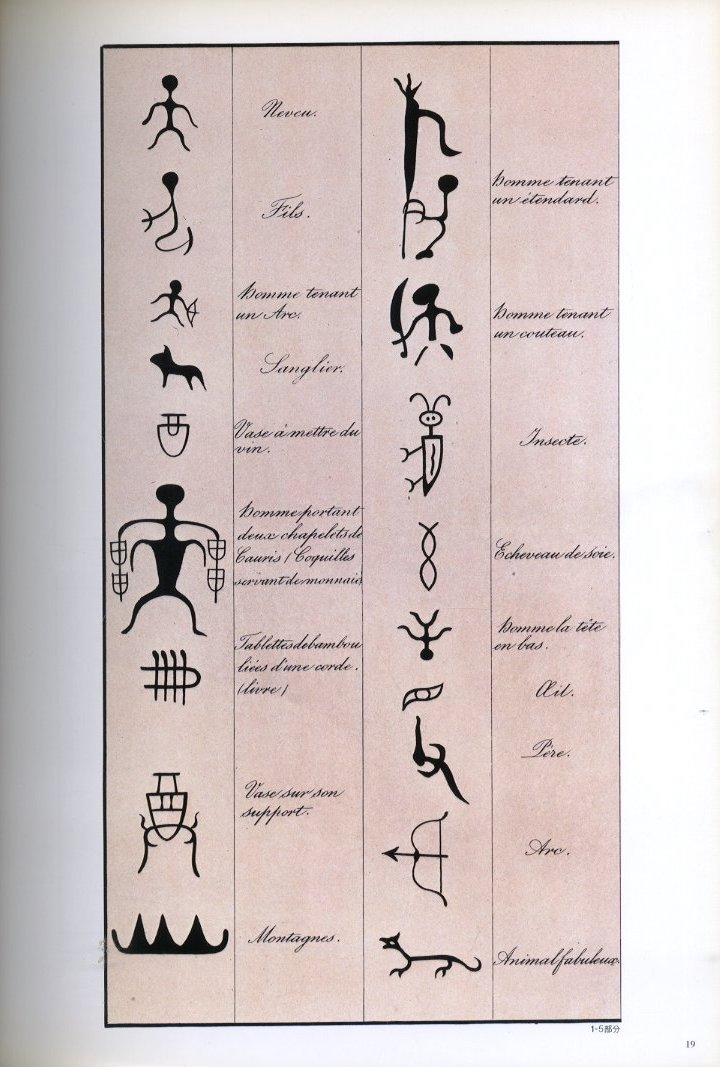 Neveu.
Fils.
Homme tenant
un Arc.
Sanglier.
Vase à mettre du
vin.
Homme portant
deux chapelets de
Cauris (Coquilles
servant de monnaie
Tablettes de bambou
liées d'une corde.
(livre)
Vase sur son
support.
Montagnes.
Homme tenant
un étendard.
Homme tenant
un couteau.
Insecte.
Echeveau de soie.
Homme la tête
en bas.
Œil.
Père.
Arc.
Animal fabuleux.
1-5部分
19